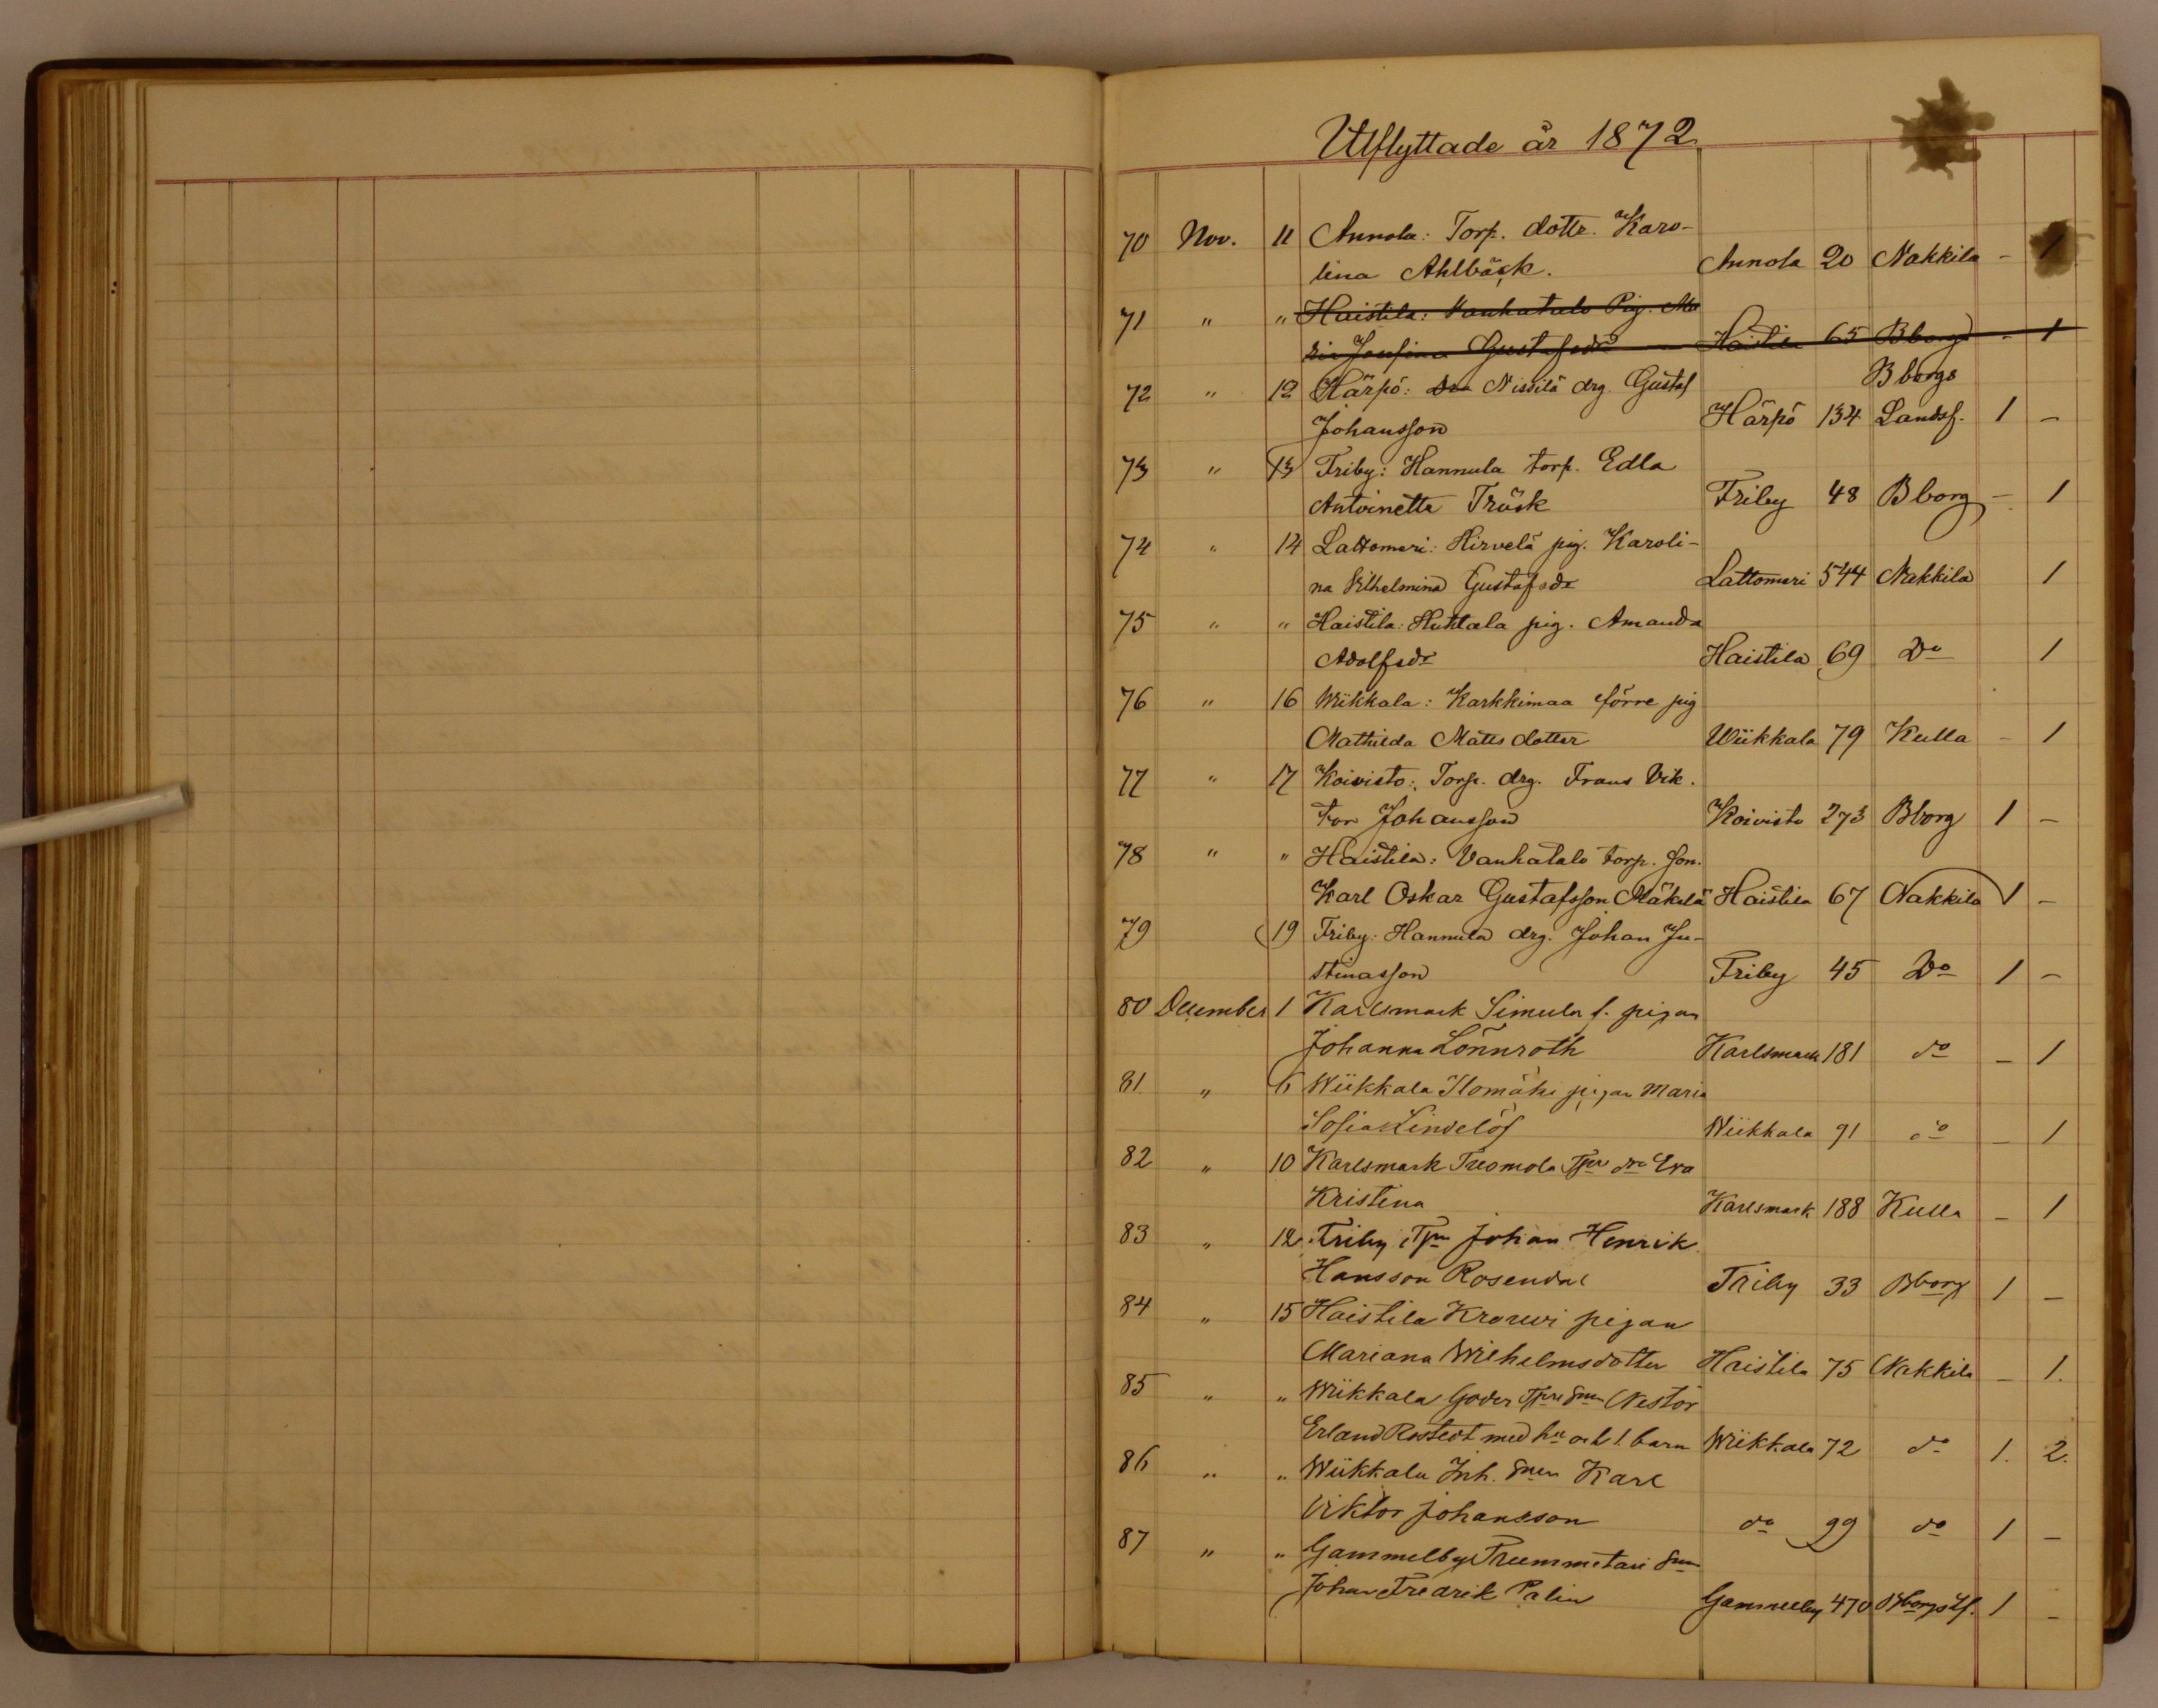 Utflyttade år 1872
70 Nov. 11 Annola: Torp. dottr. Karo-
lina Ahlbäck. Annola 20 Nakkila - 1
71 " " Haistila: Vanhatalo Pig. Ma
ria Josefina Gustafsdr Haistila 65 Bborg - 1
72 " 12 Härpö: Nissilä drg. Gustaf Bborgs
Johansson Härpö 134 Landsf. 1 -
73 " 13 Friby: Hannula torp. Edla
Antoinetta Träsk Friby 48 Bborg - 1
74 " 14 Lattomeri: Hirvelä pig. Karoli-
na Vilhelmina Gustafsdr Lattomeri 544 Nakkila 1
75 " " Haistila: Huhtala pig. Amanda
Adolfsdr Haistila 69 Do 1
76 " 16 Wiikkala: Karkkimaa förre pig
Mathilda Matts dotter Wiikkala 79 Kulla - 1
77 " 17 Koivisto: Torp. drg. Frans Vik.
tor Johansson Koivisto 273 Bborg 1 -
78 " " Haistila: Vanhatalo torp. son.
Karl Oskar Gustafsson Mäkelä Haistila 67 Nakkila 1 -
79 19 Friby: Hannula drg. Johan Ju-
stinasson Friby 45 Do 1 -
80 December 1 Karlsmark Simula f. pigan
Johanna Lönnroth Karlsmark 181 do - 1
81. " 6 Wiikkala Ilomäki pigan Maria
Sofia Lindelöf Wiikkala 91 do - 1
82 " 10 Karlsmark Tpre dr Eva
Kristina Karlsmark 188 Kulla - 1
83 " 12 Friby Tpn Johan Henrik
Hansson Rosendal Friby 33 Bborg 1 -
84 " 15 Haistila Krouvi pigan
Mariana Wilhelmsdotter Haistila 75 Nakkila - 1.
85 " " Wiikkala Goder Tpre Sn Nestor
Erland Rostedt med hu och 1. barn Wiikkala 72 do 1. 2.
86 " " Wiikkala Inh. Snen Karl
Viktor Johansson do 99 do 1 -
87 " " Gammelby Trummetari Sn
Johan Fredrik Palin Gammelby 470 Bborgs Lf. 1 -